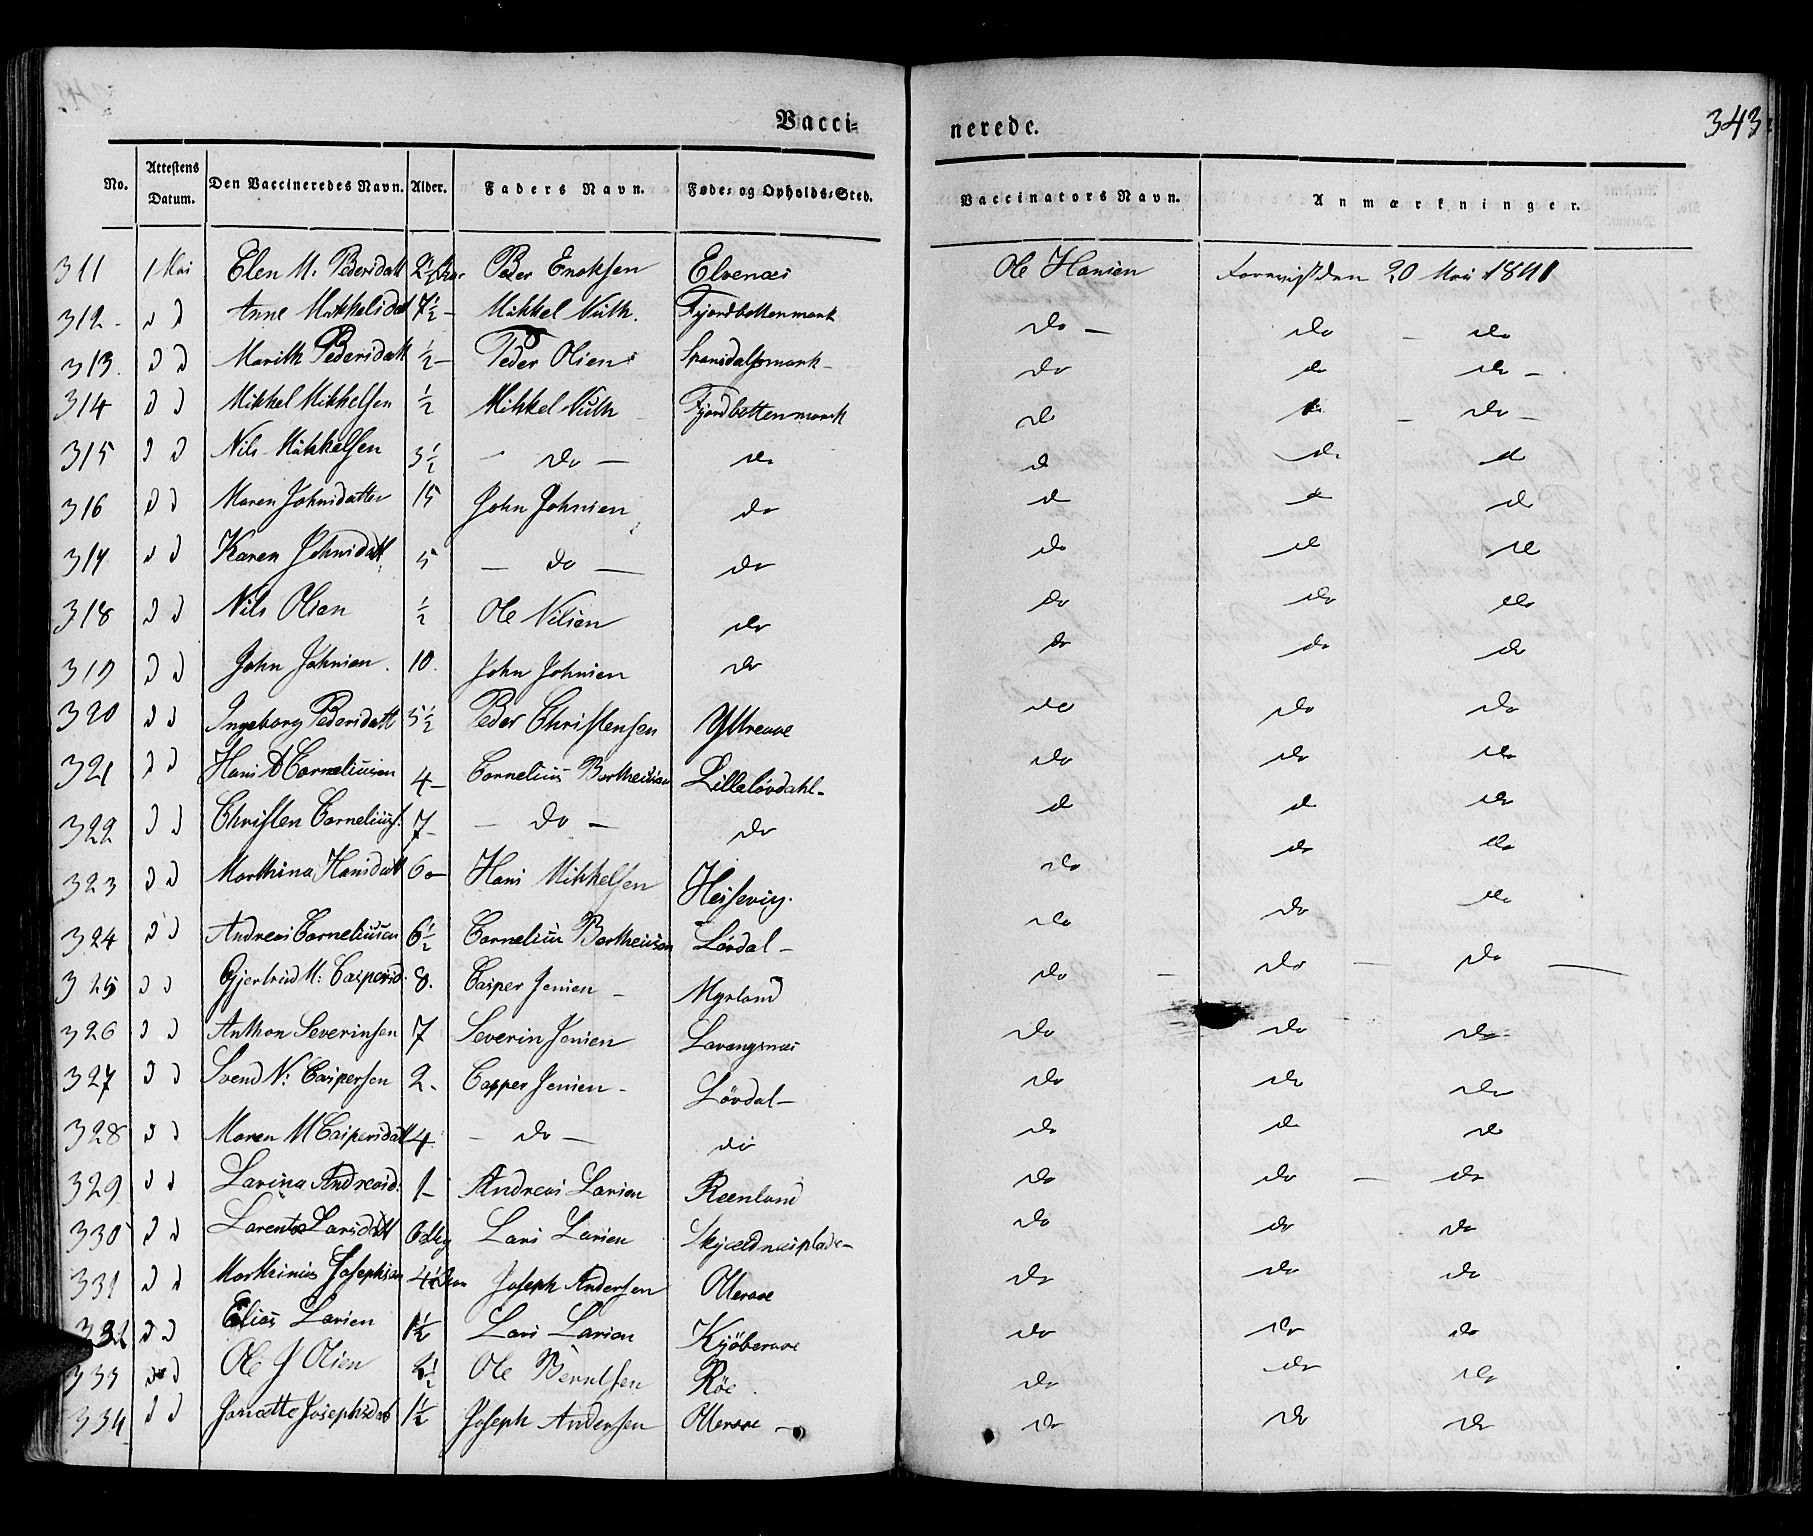 343
Vaccinerede.
No. Attestens Datum. Den Vaccineredes Navn. Alder. Faders Navn. Føde- og Opholds-Sted. Vaccinators Navn. Anmærkninger.
311 1 Mai Elen M. Pedersdatt Peder Enoksen Elvenæs Ole Hansen 20 Mai 1841
312 d d Anne Mikkelsdat 7½ Mikkel Nuth. Fjordbottenmark do do do
313. d d Marith Pedersdatt ½ Peder Olsen Spansdalsmark do do do
314 d d Mikkel Mikkelsen ½ Mikkel Nuth Fjordbottenmark do do do
315 d d Nils Mikkelsen 3½ do do d do d
316 d d Maren Johnsdatter 15 John Johnsen do d d do
317 d d Karen Johnsdatt 5 do do do do do
318 d d Nils Olsen ½ Ole Nilsen do do do do
319 d d John Johnsen 10. John Johnsen do do do do
320 d d Ingeborg Pedersdatt 3½ Peder Christensen Yttreaae do do do
321 d d Hans A Corneliusen 4 Cornelius Bertheusen Lilleløvdahl do do do
322 d d Christen Cornelius. 7 do do d d do
323 d d Marthina Hansdatt 6 Hans Mikkelsen Hessevig. do do do
324 d d Andreas Corneliusen 6½ Cornelius Bertheusen Løvdal do do do
325 d d Gjertrud M: Caspersd. 8. Casper Jensen Myrland do do do
326 d d Anthon Severinsen 7 Severin Jensen Lavangsnæs do do do
327 d d Svend N: Caspersen 2. Casper Jensen Løvdal do do do
328 d d Maren M Caspersdatt 4 do do do do do
329 d d Lavina Andreasd. 1 Andreas Larsen Reenland do do do
330 d d Larentse Larsdatt Lars Larsen Skjældnæsplads do do do
331 d d Marthinus Josephsen Joseph Andersen Otteraae do do do
332 d d Elias Larsen 1½ Lars Larsen Kjøberaae do do do
333 d d Ole J Olsen Ole Berntsen Røe. do do do
334 d d Josephsdat 1½ Joseph Andersen Otteraae do do do